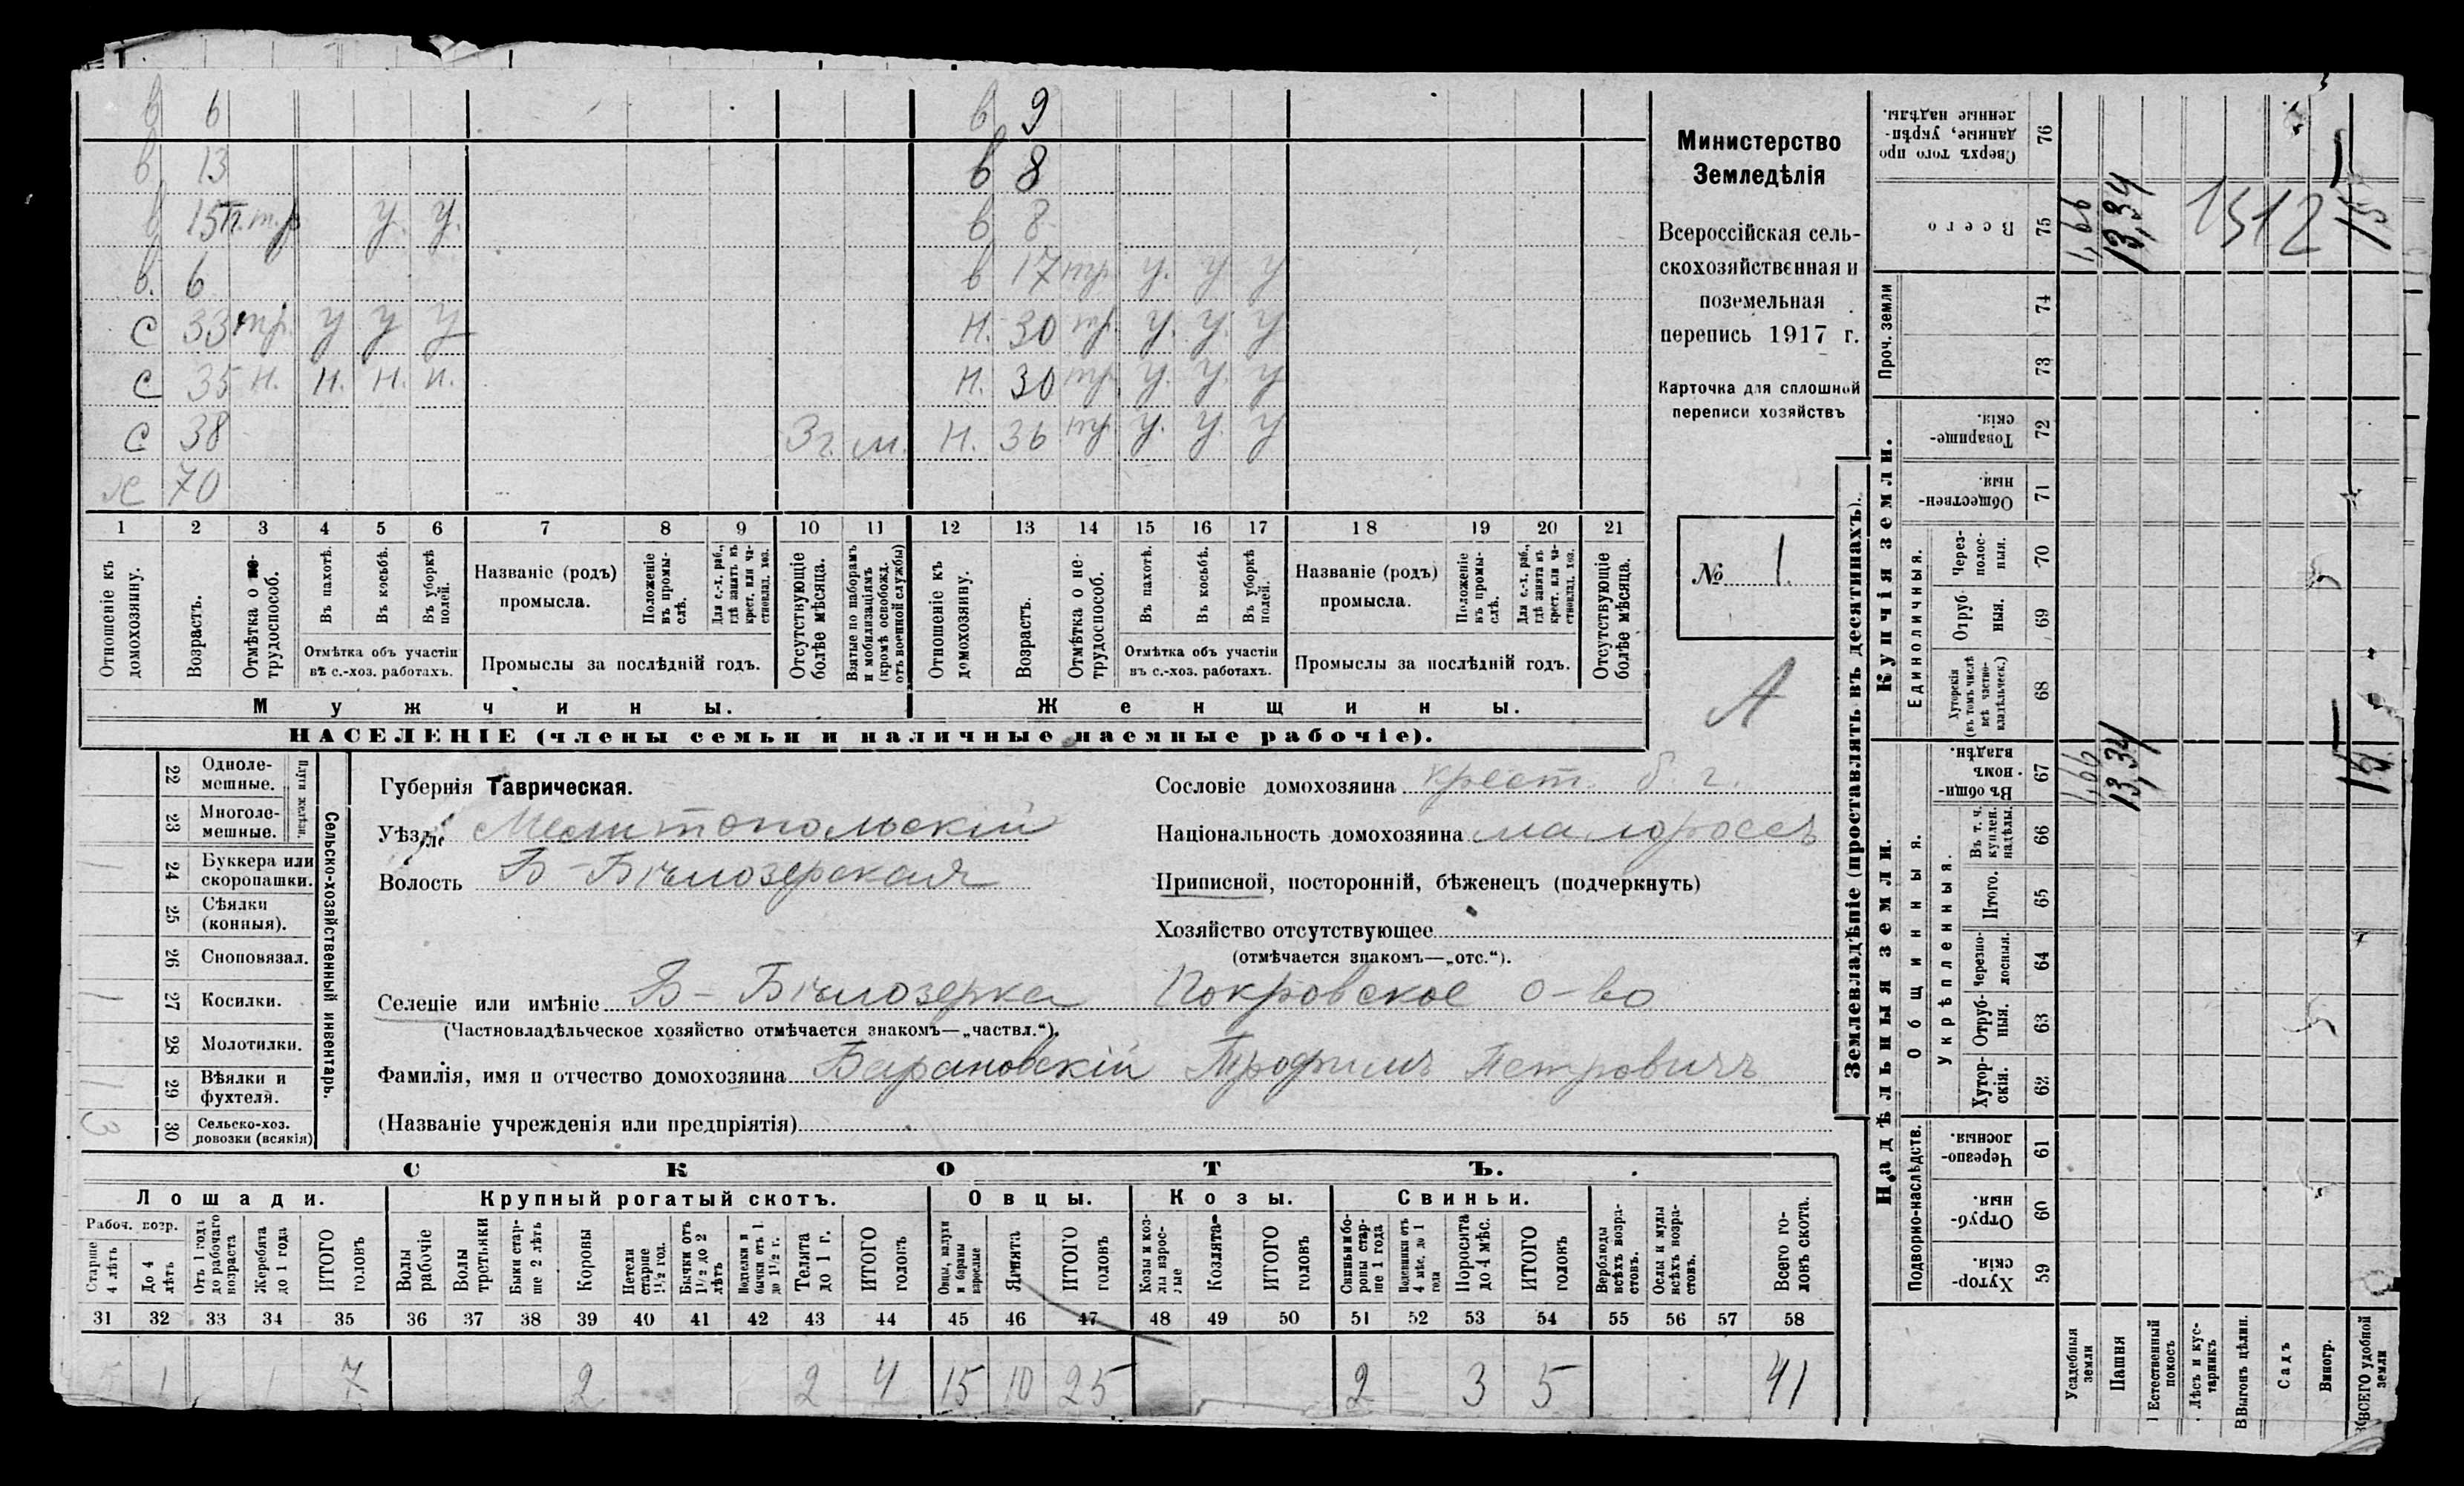 в 6 в 9
в 13 в 8
в 15 п.т.р у. у. в 8
в. 6 в 17 тр. у. у у
с 33 тр. у у у н. 30 тр. у. у. у
с 35 н. н. н. н. н. 30 тр. у. у. у
с 38 3 г. м. н. 36 тр у. у. у
х 70
1 2 3 4 5 6 7 8 9 10 11 12 13 14 15 16 17 18 19 20 21
Отношеніе къ домохозяину.
Возрастъ.
Отмѣтка о не-трудоспособ.
Въ пахотѣ.
Въ косьбѣ.
Въ уборкѣ полей.
Отмѣтка объ участіи
въ с.-хоз. работахъ.
Названіе (родъ)
промысла.
Положеніе въ промы-слѣ.
Для с.-х. раб., гдѣ занятъ въ крест. или ча-стновлад. хоз.
Промыслы за послѣдній годъ.
Отсутствующіе болѣе мѣсяца.
Взятые по наборамъ и мобилизаціямъ (кромѣ освобожд. отъ военной службы)
Отношеніе къ домохозяину.
Возрастъ.
Отмѣтка о не-трудоспособ.
Въ пахотѣ.
Въ косьбѣ.
Въ уборкѣ полей.
Отмѣтка объ участіи
въ с.-хоз. работахъ.
Названіе (родъ)
промысла.
Положеніе въ промы-слѣ.
Для с.-х. раб., гдѣ занята въ крест. или ча-стновлад. хоз.
Промыслы за послѣдній годъ.
Отсутствующіе болѣе мѣсяца.
Мужчины.
Женщины.
НАСЕЛЕНІЕ (члены семьи и наличные наемные рабочіе).
Министерство
Земледѣлія
Всероссійская сель-
скохозяйственная и
поземельная
перепись 1917 г.
Карточка для сплошной
переписи хозяйствъ
№ 1.
А
22 Одноле-мешные.
23 Многоле-мешные.
Плуги желѣзн.
1 24 Буккера или скоропашки.
25 Сѣялки (конныя).
26 Сноповязал.
1 27 Косилки.
28 Молотилки.
1 29 Вѣялки и фухтеля.
3 30 Сельско-хоз. повозки (всякія)
Сельско-хозяйственный инвентарь.
Губернія Таврическая.
Уѣздъ Мелитопольскій
Волость Б-Бѣлозерская
Селеніе или имѣніе Б-Бѣлозерка Покровское о-во
(Частновладѣльческое хозяйство отмѣчается знакомъ—„частвл.“).
Фамилія, имя и отчество домохозяина Барановскій Трофимъ Петровичъ
(Названіе учрежденія или предпріятія)
Сословіе домохозяина крест. б. г.
Національность домохозяина малороссъ
Приписной, посторонній, бѣженецъ (подчеркнуть)
Хозяйство отсутствующее
(отмѣчается знакомъ—„отс.“).
СКОТЪ.
Лошади. Крупный рогатый скотъ. Овцы. Козы. Свиньи.
Рабоч. возр.
Старше 4 лѣтъ
До 4 лѣтъ
Отъ 1 года до рабочаго возраста
Жеребята до 1 года
ИТОГО головъ
Волы рабочіе
Волы третьяки
Быки стар-ше 2 лѣтъ
Коровы
Нетели старше 1½ год.
Бычки отъ 1½ до 2 лѣтъ
Подтелки и бычки отъ 1 до 1½ г.
Телята до 1 г.
ИТОГО головъ
Овцы, валухи и бараны взрослые
Ягнята
ИТОГО головъ
Козы и коз-лы взрос-лые
Козлята
ИТОГО головъ
Свиньи и бо-ровы стар-ше 1 года
Подсвинки отъ 4 мѣс. до 1 года
Поросята до 4 мѣс.
ИТОГО головъ
Верблюды всѣхъ возра-стовъ.
Ослы и мулы всѣхъ возра-стовъ.
Всего го-ловъ скота.
31 32 33 34 35 36 37 38 39 40 41 42 43 44 45 46 47 48 49 50 51 52 53 54 55 56 57 58
5 1 1 7 2 2 4 15 10 25 2 3 5 41
Землевладѣніе (проставлять въ десятинахъ).
Сверхъ того про данные, укрѣп-ленные надѣлы. 76
Всего 75 1,66 13,34 1512 15
Проч. земли 74 73
Купчія земли.
Товарище-скія. 72
Обществен-ныя. 71
Единоличныя.
Через-полос-ныя. 70
Отруб-ныя. 69
Хуторскія (въ томъ числѣ всѣ частно-владѣльческ.) 68
Надѣльныя земли.
Общинныя.
Въ общи-номъ владѣн. 67 1,66 13,34 15
Укрѣпленныя.
Въ т. ч. куплен. надѣлы. 66
Итого. 65
Черезпо-лосныя. 64
Отруб-ныя. 63
Хутор-скія. 62
Подворно-наслѣдств.
Черезпо-лосныя. 61
Отруб-ныя. 60
Хутор-скія. 59
Усадебныя земли
Пашня
Естественный покосъ
Лѣсъ и кус-тарникъ
Выгонъ цѣлин.
Садъ
Виногр.
ВСЕГО удобной земли